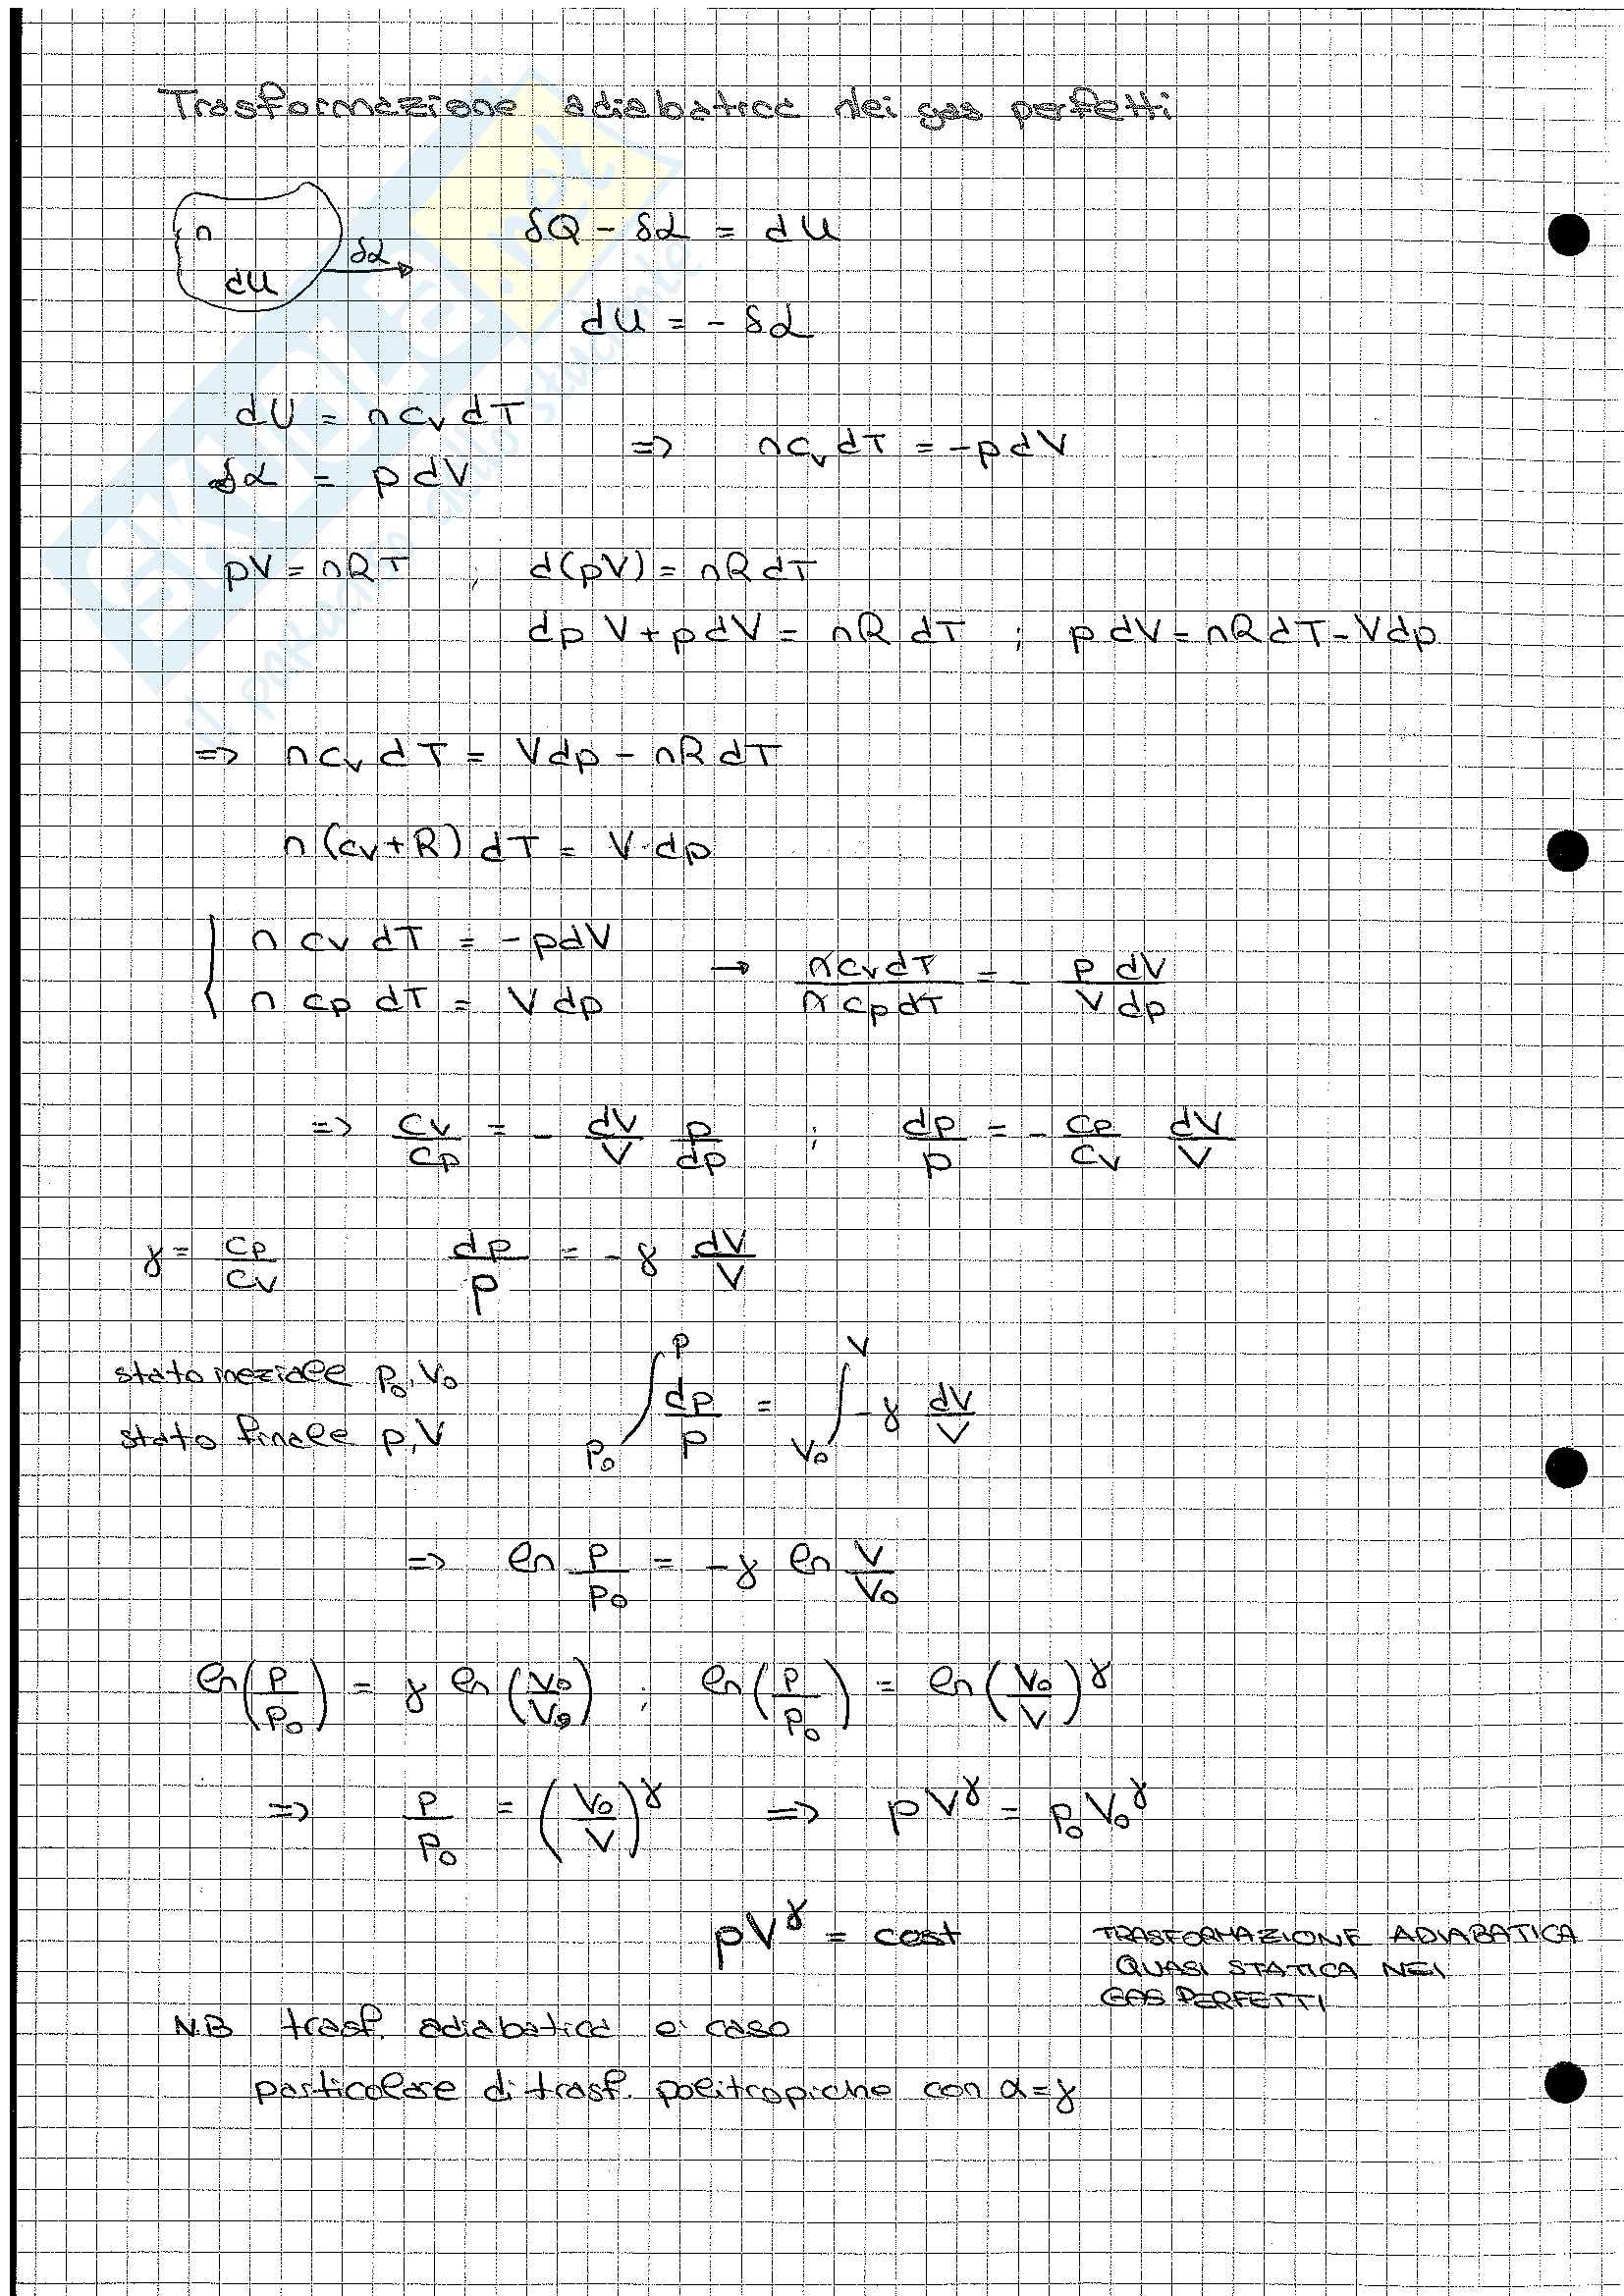 Trasformazione adiabatica nei gas perfetti
n
dU
δL
δQ - δL = dU
dU = - δL
dU = n cv dT
δL = p dV
=> n cv dT = -p dV
pV = nRT ; d(pV) = nR dT
dp V + p dV = nR dT ; p dV = nR dT - V dp
=> n cv dT = V dp - nR dT
n (cv+R) dT = V dp
{ n cv dT = -pdV
n cp dT = V dp
→ n cv dT / n cp dT = - p dV / V dp
=> cv/cp = - dV/V p/dp ; dp/p = - cp/cv dV/V
γ = cp/cv dp/p = - γ dV/V
stato iniziale p₀, V₀
stato finale p, V
∫_{p₀}^{p} dp/p = ∫_{V₀}^{V} -γ dV/V
=> ln p/p₀ = -γ ln V/V₀
ln(p/p₀) = γ ln (V₀/V) ; ln(p/p₀) = ln (V₀/V)^γ
=> p/p₀ = (V₀/V)^γ => pV^γ = p₀V₀^γ
pV^γ = cost
TRASFORMAZIONE ADIABATICA
QUASI STATICA NEI
GAS PERFETTI
N.B trasf. adiabatica e' caso
particolare di trasf. politropiche con α=γ
skuola.net
il paradiso dello studente